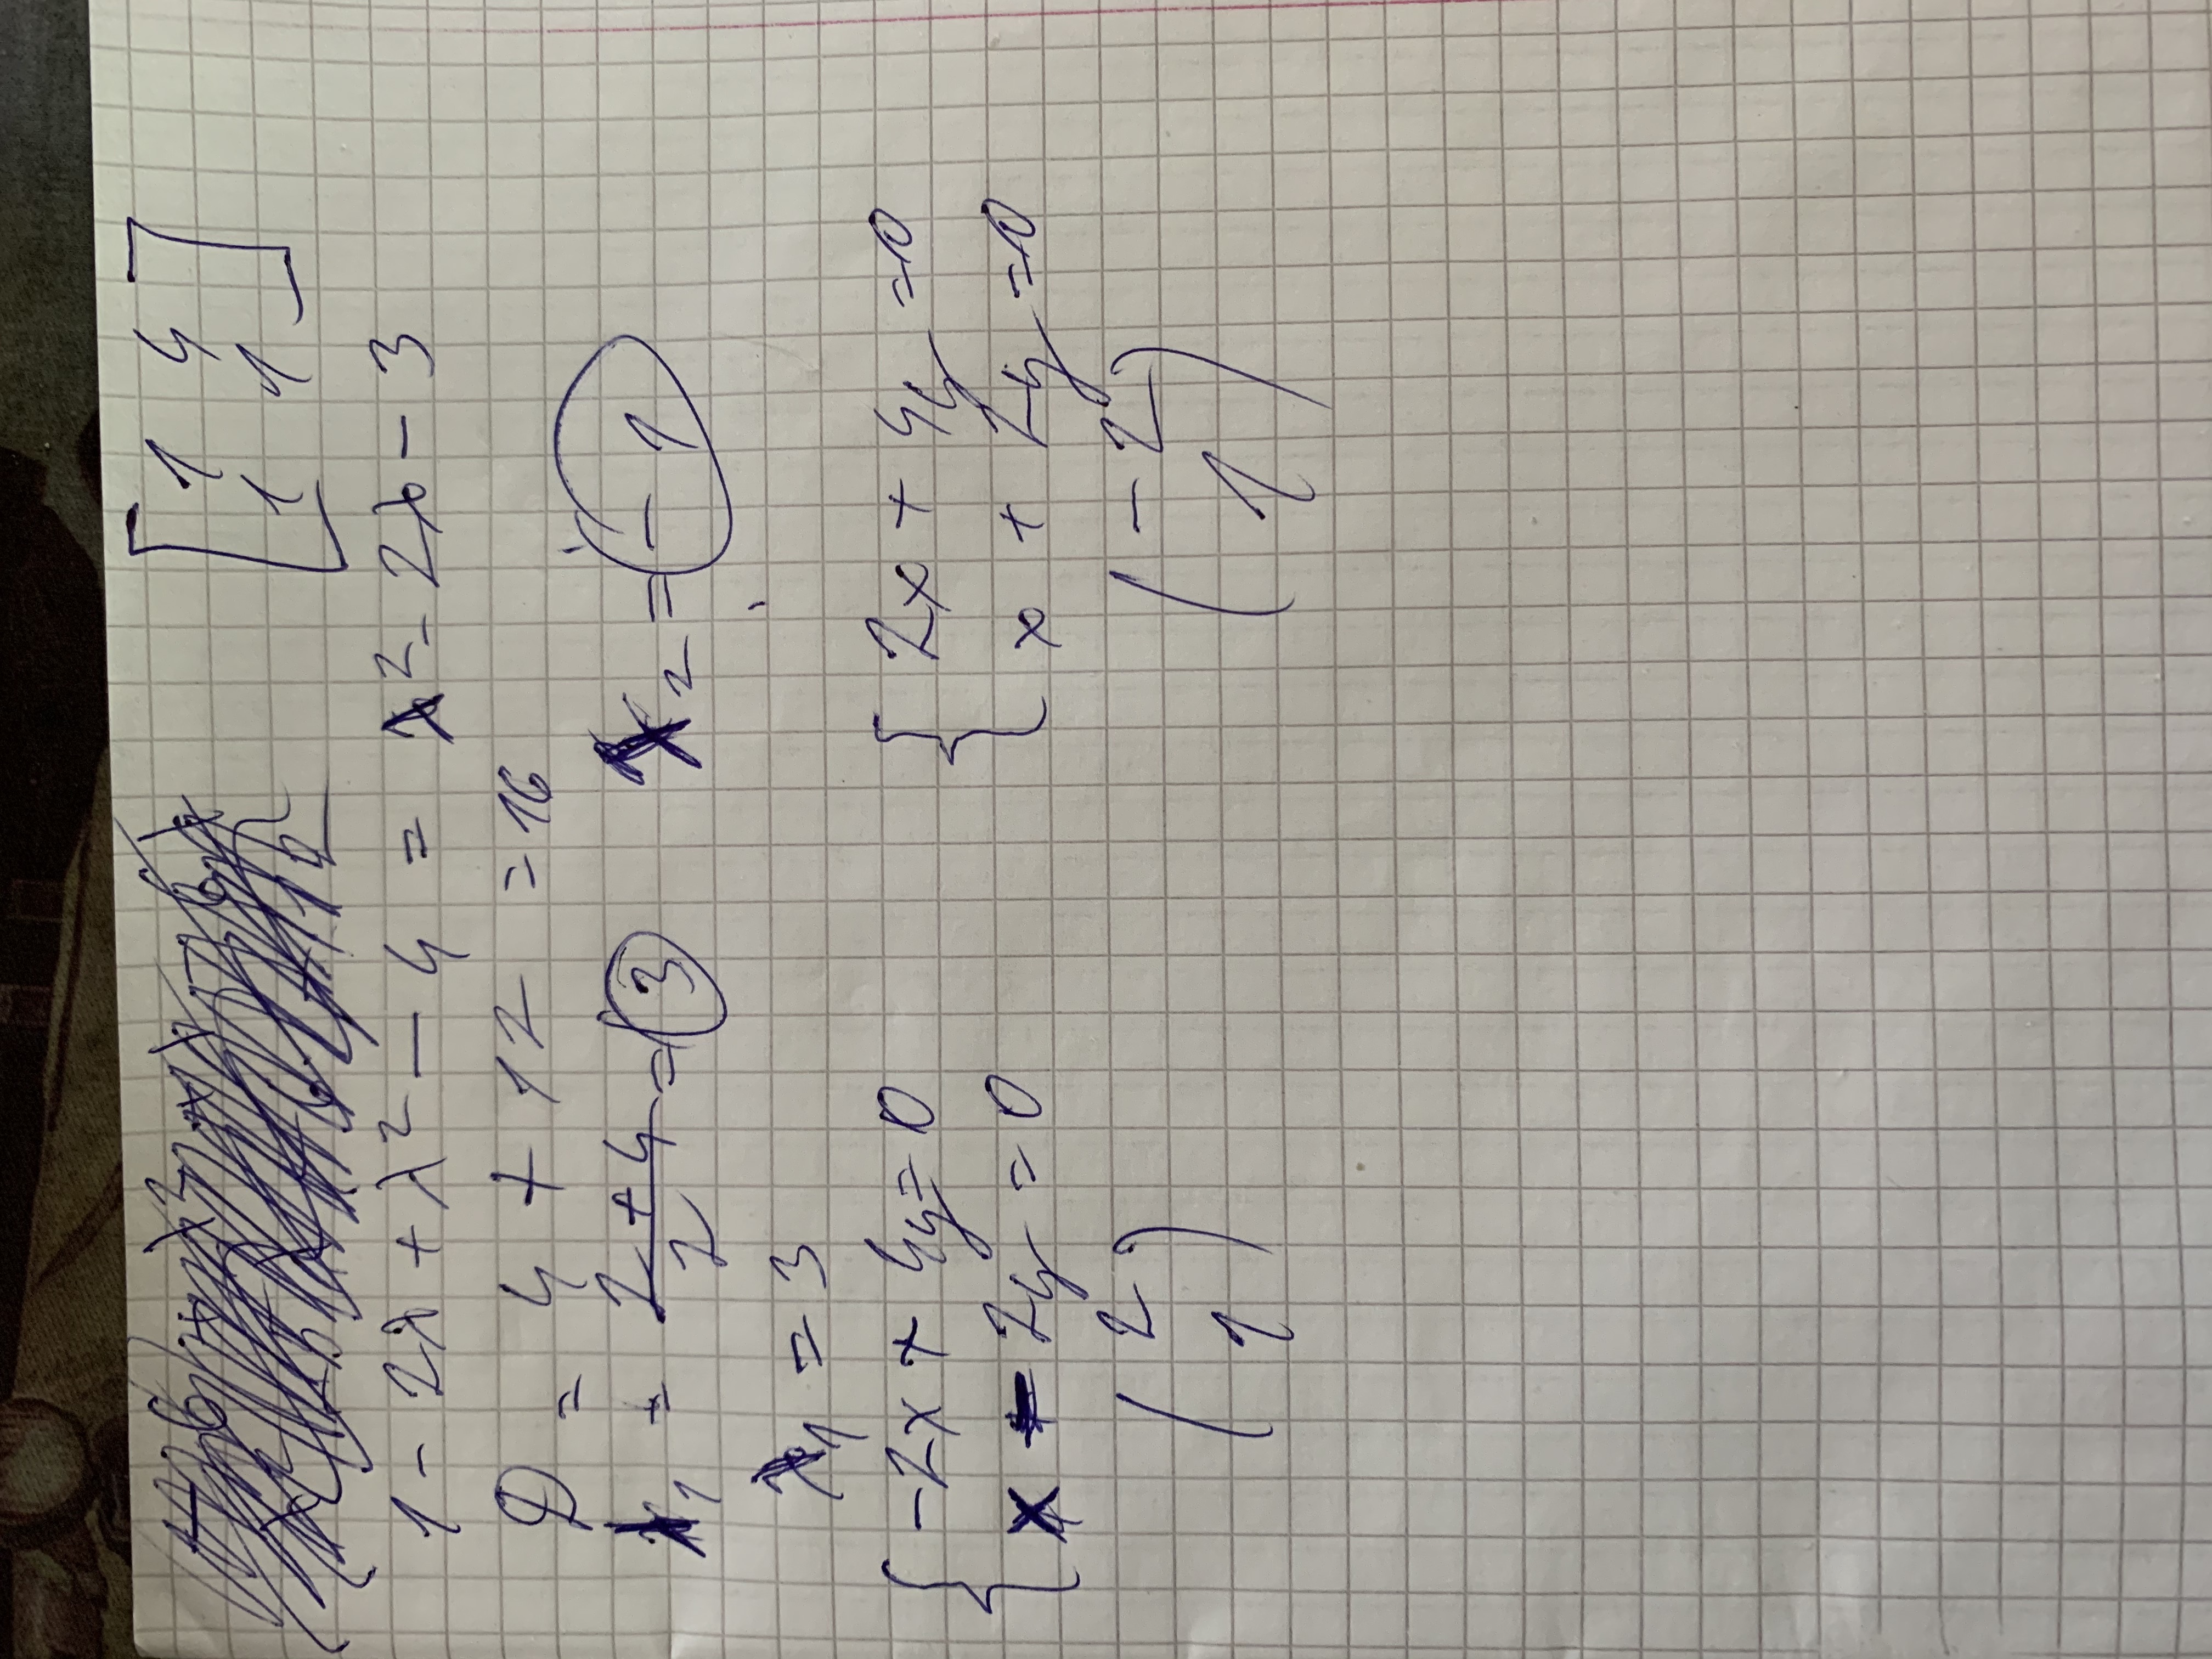 [1 4
1 1]
1 - 2λ + λ² - 4 = λ² - 2λ - 3
D = 4 + 12 = 16
λ₁ = (2 + 4)/2 = 3 λ₂ = -1
λ₁ = 3
{ -2x + 4y = 0
x - 2y = 0
{ 2x + 4y = 0
x + 2y = 0
(2
1)
(-2
1)